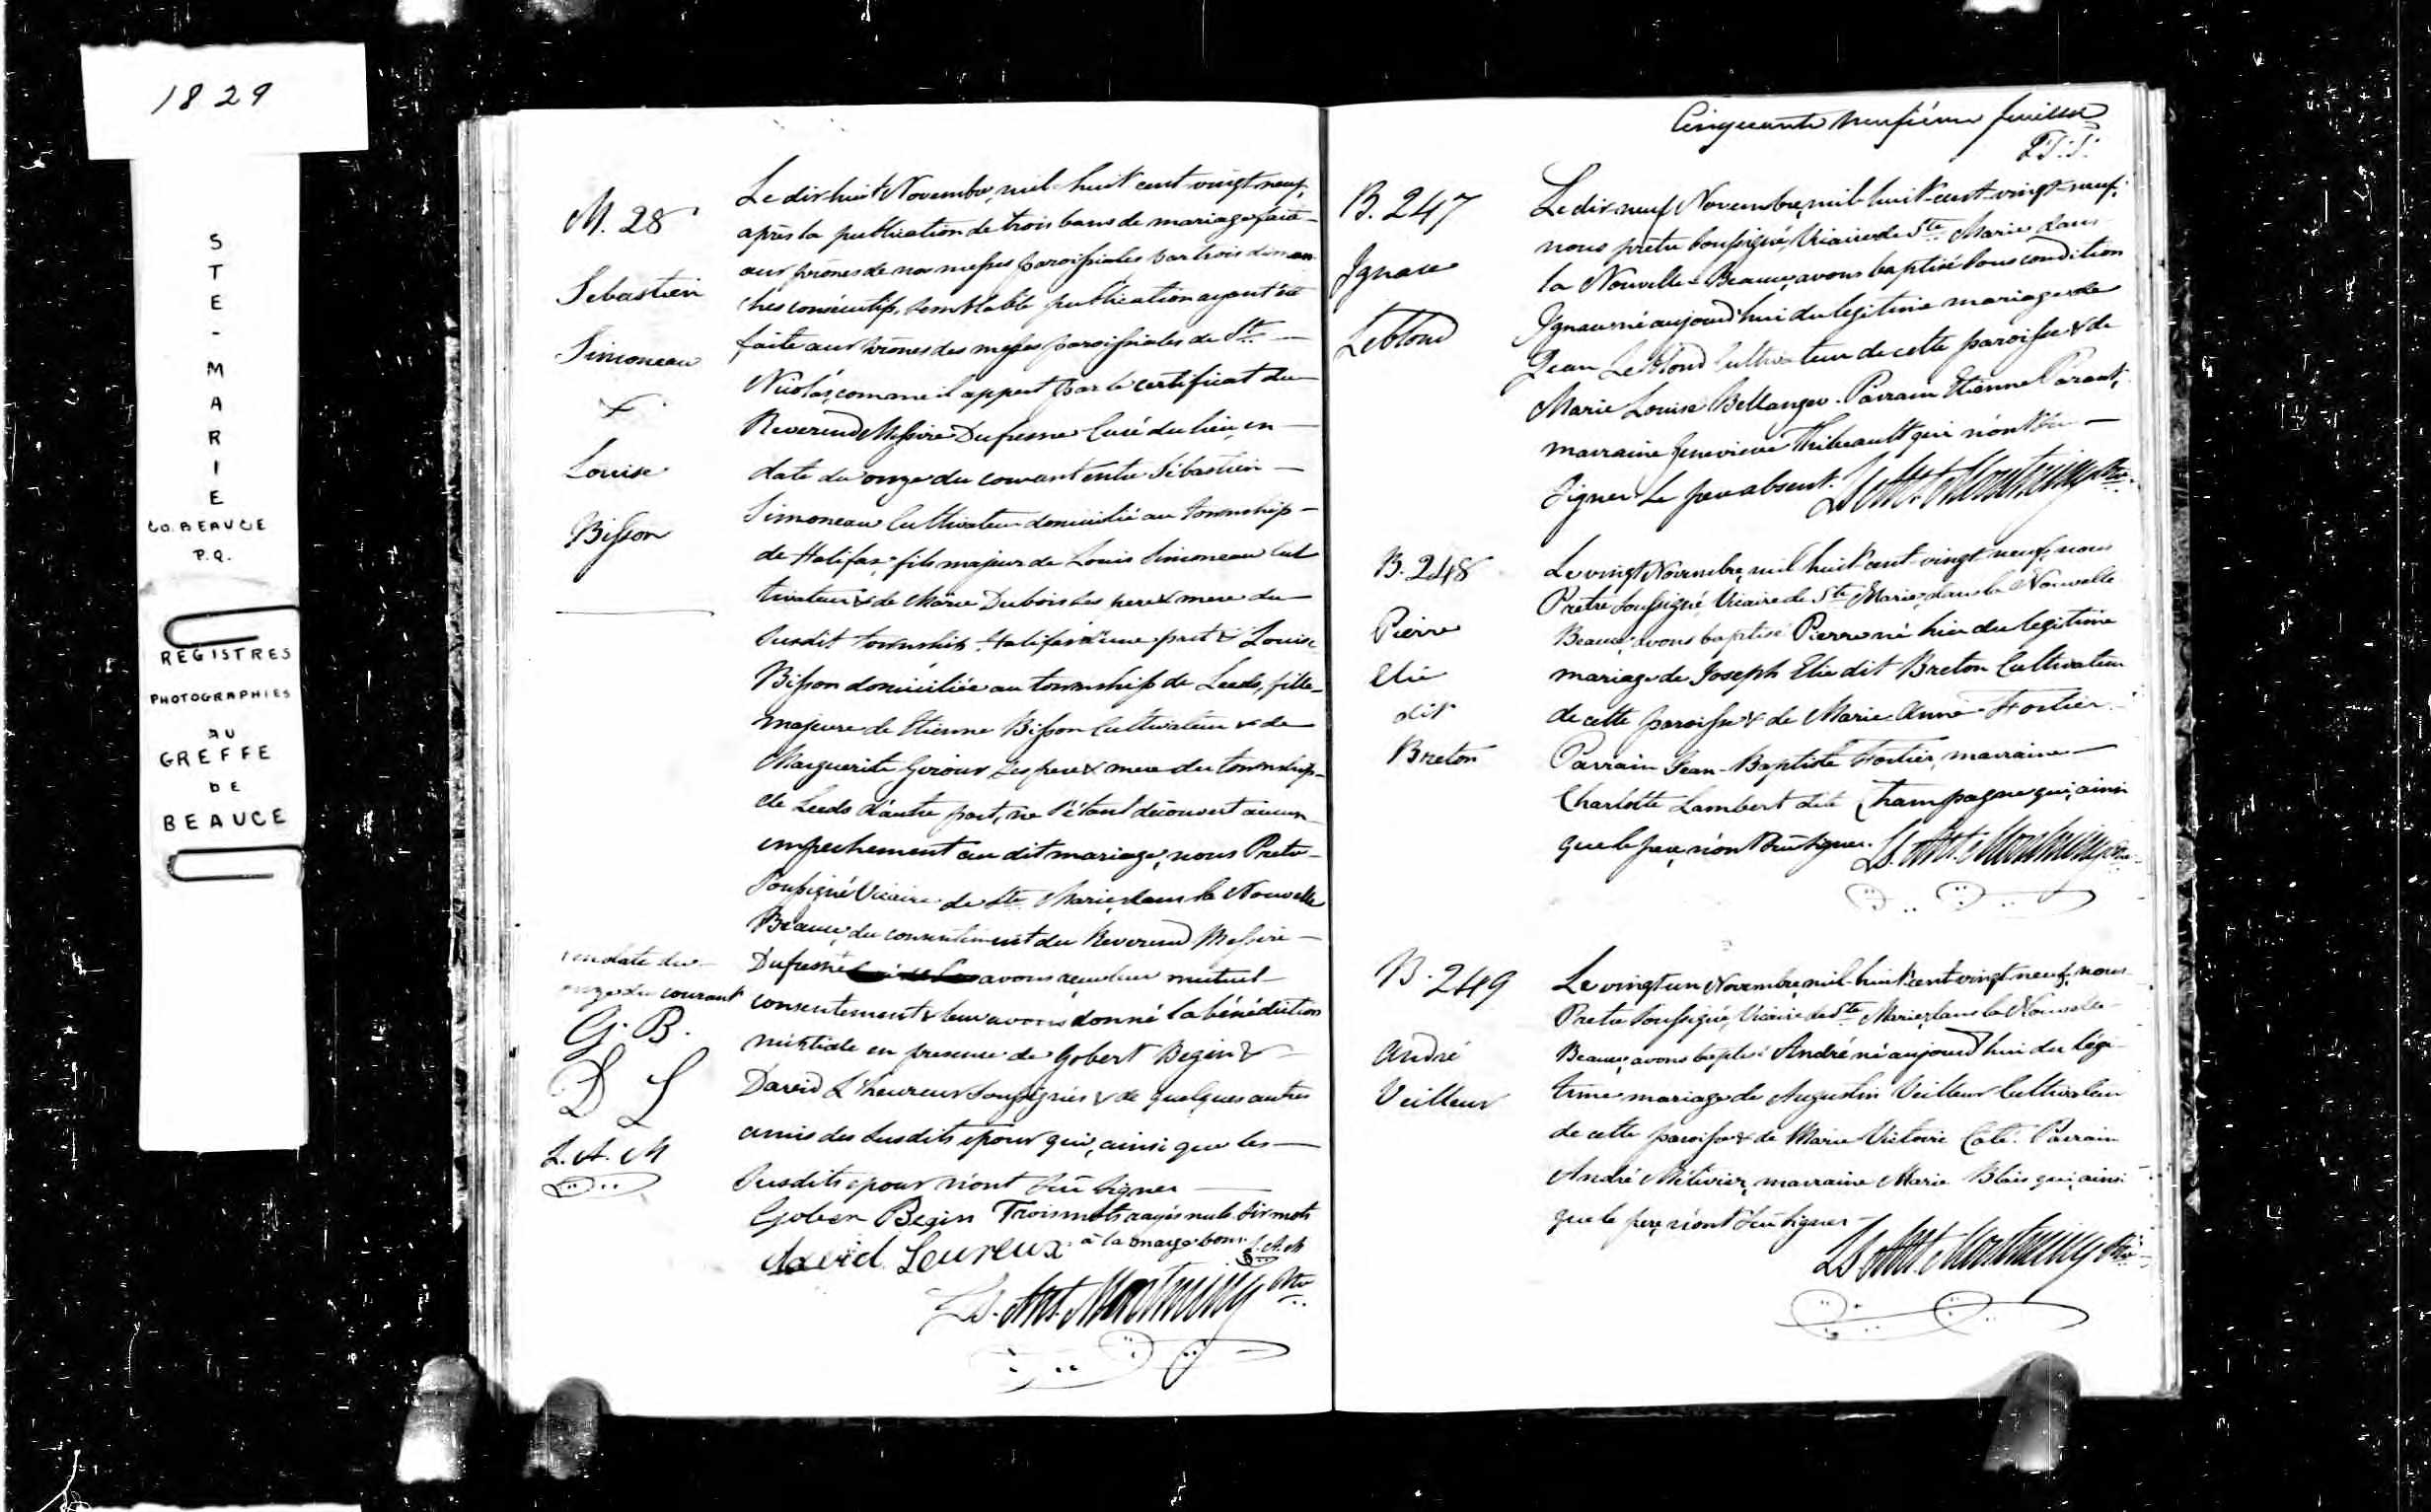 1829
STE-MARIE
CO. BEAUCE
P.Q.
REGISTRES
PHOTOGRAPHIES
AU
GREFFE
DE
BEAUCE
M. 28
Sebastien
Simoneau
&
Louise
Bisson
Le dix huit Novembre, mil-huit cent-vingt-neuf,
après la publication de trois bans de mariage faite
aux prônes de nos messes paroissiales par trois diman-
ches consécutifs, semblable publication ayant été
faite aux prônes des messes paroissiales de St.
Nicolas, comme il appert par le certificat du
Reverend Messire Dufresne Curé du lieu, en
date du onze du courant entre Sébastien
Simoneau Cultivateur domicilié au township
de Halifax, fils majeur de Louis Simoneau Cul
tivateur & de Marie Dubois ses pere & mere du
susdit township Halifax d'une part & Louise
Bisson domiciliée au township de Leeds, fille
majeure de Etienne Bisson Cultivateur & de
Marguerite Giroux ses pere & mere du township
de Leeds d'autre part, ne s'étant découvert aucun
empechement au dit mariage, nous Pretre
soussigné Vicaire de Ste. Marie, dans la Nouvelle
Beauce, du consentiment du Reverend Messire
Dufresne avons reçu leur mutuel
consentement & leur avons donné la bénédiction
nuptiale en presence de Gobert Begin &
David L'heureux soussignés & de quelques autres
amis des susdits époux qui, ainsi que les
susdits epoux n'ont sçu signer
en date du
onze du courant
G. B.
D L
L. A. M
Gober Begin Trois mots rayés nuls. Six mots
david Leureux à la marge bons. L. A. M
Ls. Ant. Montminy Ptre
Cinquante neufième feuillet
B. 247
Ignace
Leblond
Le dix neuf Novembre, mil-huit-cent-vingt-neuf,
nous prêtre soussigné, Vicaire de Ste. Marie, dans
la Nouvelle-Beauce, avons baptisé sous condition
Ignace né aujourd'hui du legitime mariage de
Jean Leblond Cultivateur de cette paroisse & de
Marie Louise Bellanger. Parrain Etienne Parant,
marraine Genevieve Thibeault qui n'ont sçu
signer. Le pere absent. Ls. Ant. Montminy Ptre
B. 248
Pierre
Elie
dit
Breton
Le vingt Novembre, mil huit-cent-vingt-neuf, nous
Pretre soussigné, Vicaire de Ste Marie, dans la Nouvelle
Beauce, avons baptisé Pierre né hier du legitime
mariage de Joseph Elie dit Breton Cultivateur
de cette paroisse & de Marie Anne Fortier.
Parrain Jean-Baptiste Fortier, marraine
Charlotte Lambert dite Champagne qui, ainsi
que le pere, n'ont sçu signer. Ls. Ant. Montminy Ptre
B. 249
André
Veilleux
Le vingt un Novembre, mil-huit cent vingt-neuf, nous
Pretre soussigné, Vicaire de Ste. Marie, dans la Nouvelle
Beauce, avons baptisé André né aujourd'hui du légi
time mariage de Augustin Veilleux Cultivateur
de cette paroisse & de Marie Victoire Coté. Parrain
André Métivier, marraine Marie Blais qui, ainsi
que le pere, n'ont sçu signer
Ls Ant. Montminy Ptre